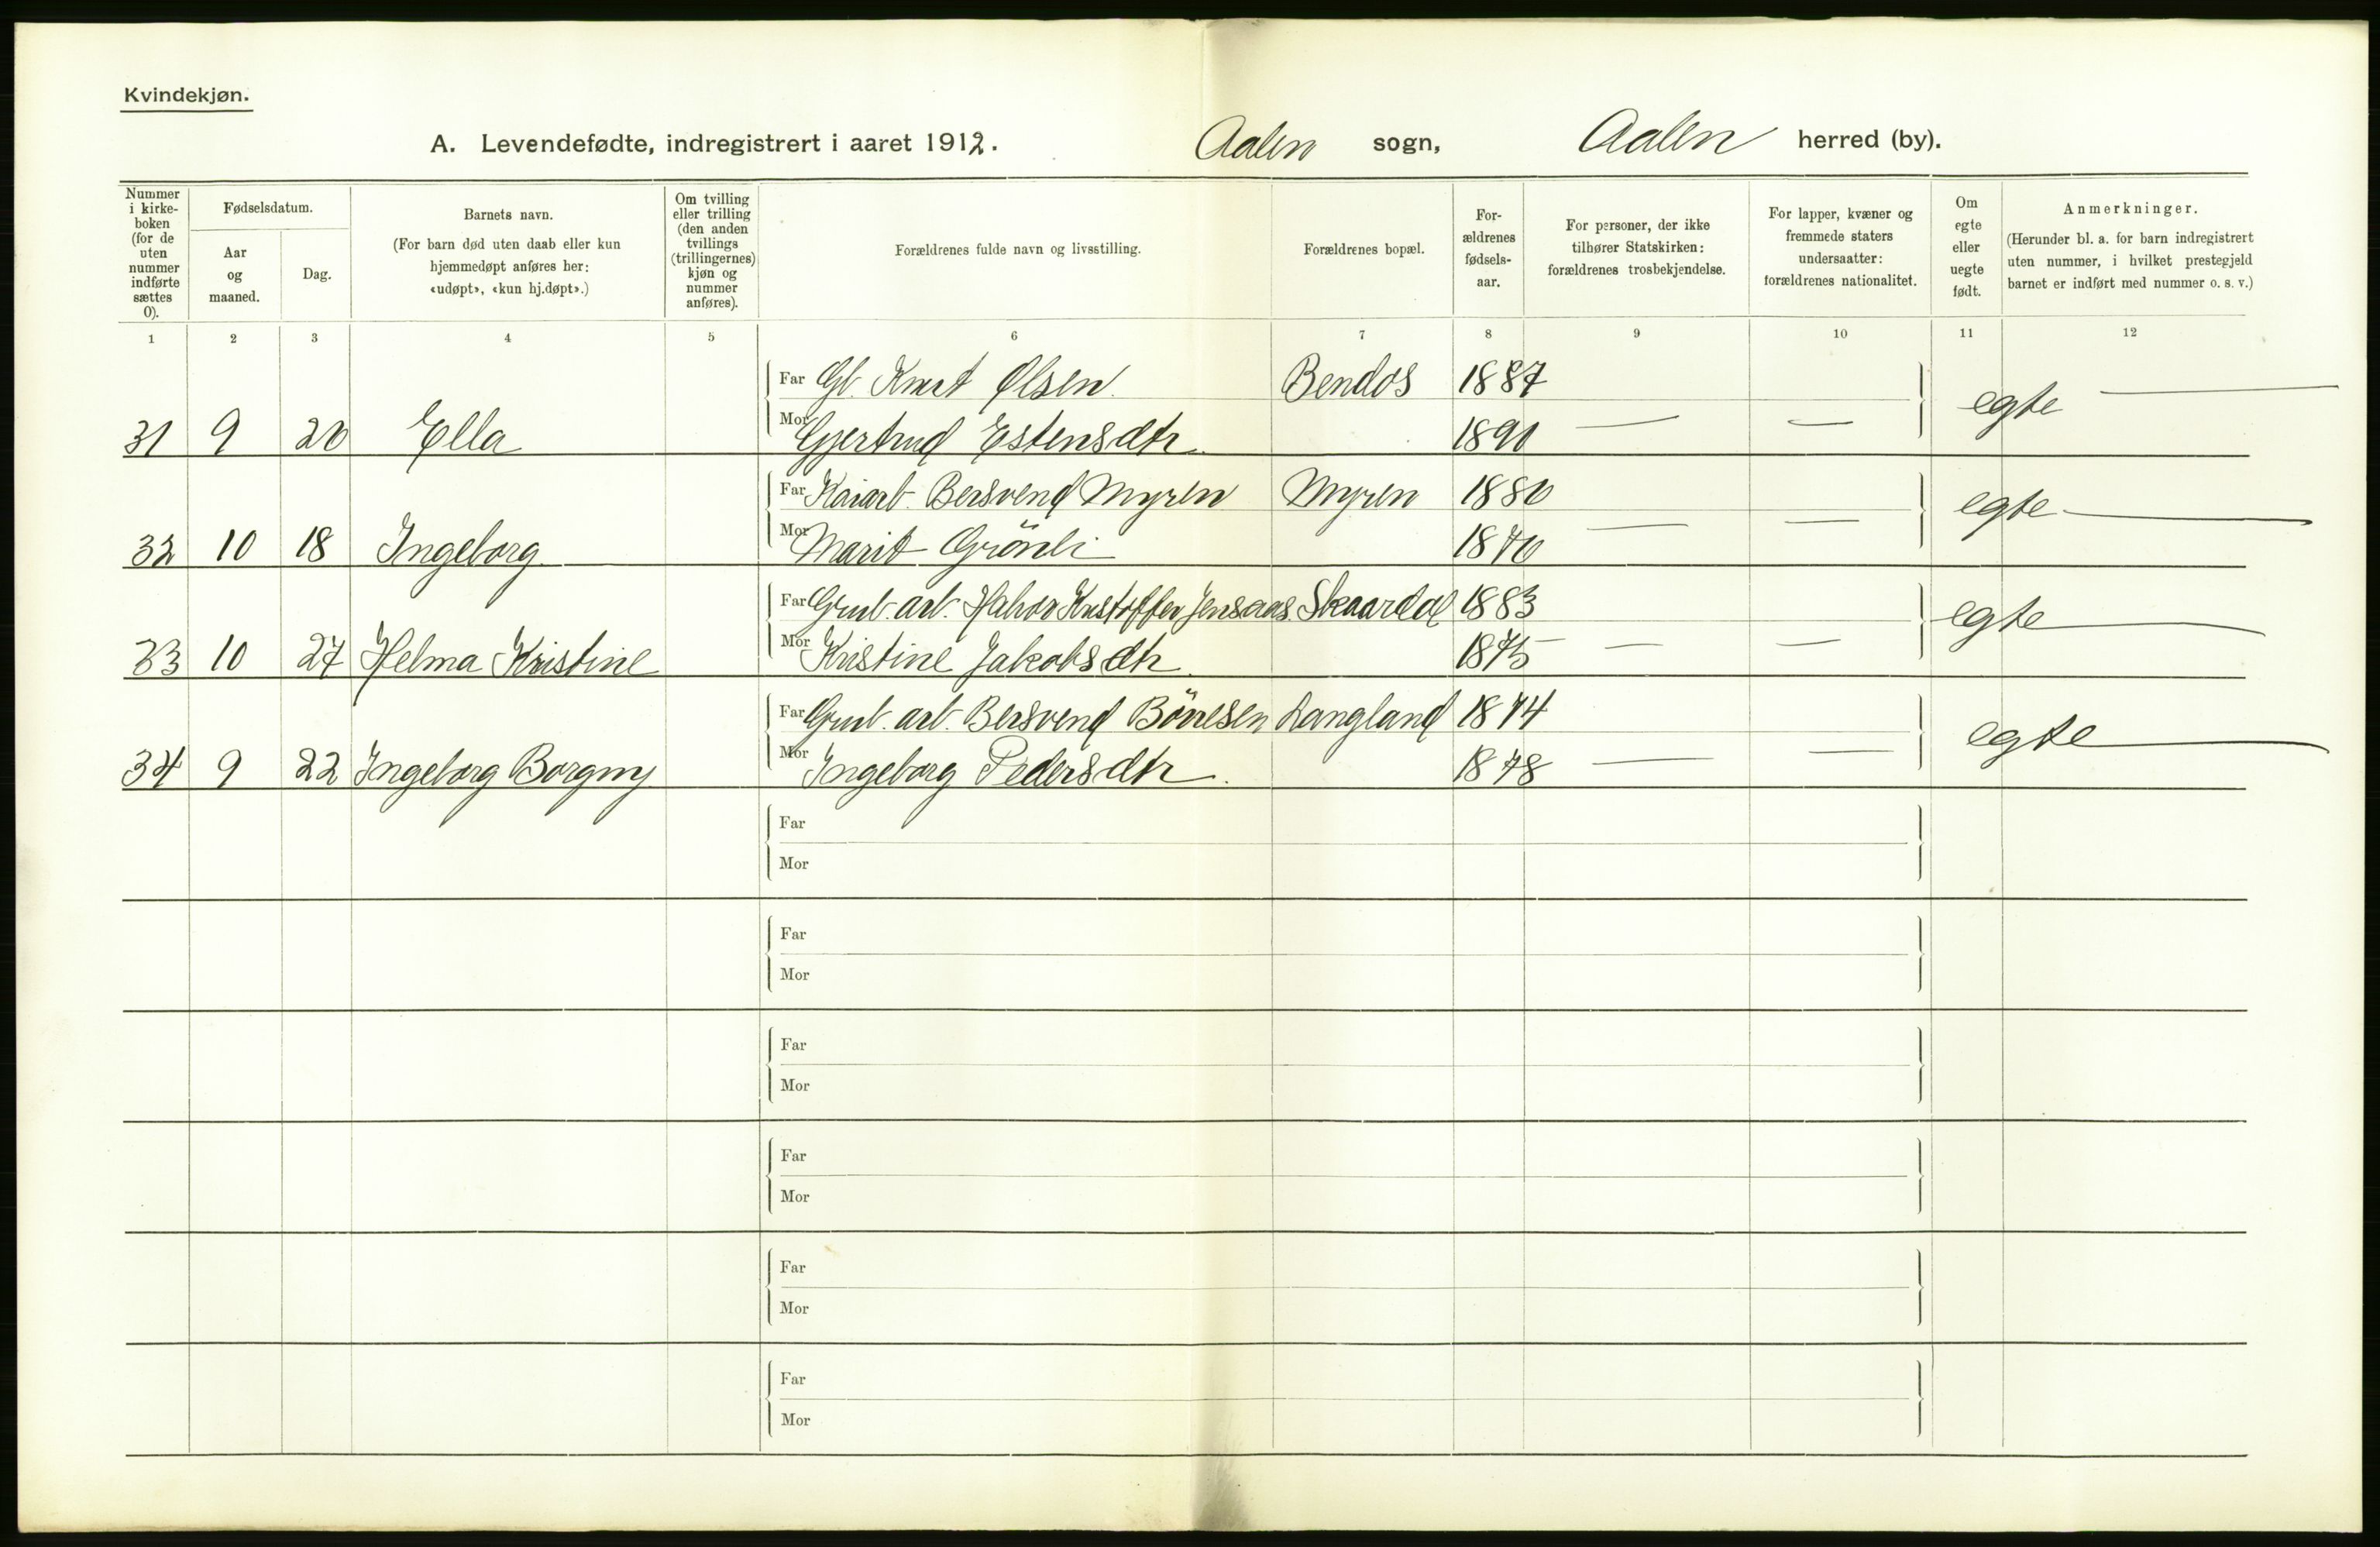 Kvindekjøn.
A. Levendefødte, indregistrert i aaret 1912. Aalen sogn, Aalen herred (by).
Nummer i kirke-boken (for de uten nummer indførte sættes 0).
Fødselsdatum.
Aar og maaned.
Dag.
Barnets navn.
(For barn død uten daab eller kun hjemmedøpt anføres her: «udøpt», «kun hj.døpt».)
Om tvilling eller trilling (den anden tvillings (trillingernes) kjøn og nummer anføres).
Forældrenes fulde navn og livsstilling.
Forældrenes bopæl.
For-ældrenes fødsels-aar.
For personer, der ikke tilhører Statskirken: forældrenes trosbekjendelse.
For lapper, kvæner og fremmede staters undersaatter: forældrenes nationalitet.
Om egte eller uegte født.
Anmerkninger.
(Herunder bl. a. for barn indregistrert uten nummer, i hvilket prestegjeld barnet er indført med nummer o. s. v.)
1 2 3 4 5 6 7 8 9 10 11 12
Far Gb. Knut Olsen. Bendos 1887
31 9 20 Ella Mor Gjertrud Estensdtr. 1890 — — egte —
Far Bersvend Myren Myren 1880
32 10 18 Ingeborg Mor Marit Grönli 1870 — — egte —
Far Grub. arb. Halvor Kristoffer Jensaas Skaardal 1883
33 10 27 Helma Kristine Mor Kristine Jakobsdtr. 1875 — — egte —
Far Grub. arb. Bersvend Börresen Langland 1874
34 9 22 Ingeborg Borgny Mor Ingeborg Pedersdtr. 1878 — — egte —
Far
Mor
Far
Mor
Far
Mor
Far
Mor
Far
Mor
Far
Mor